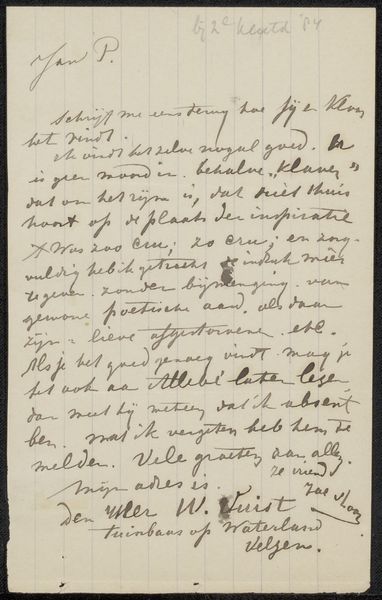 bij 2e
Jan P.
Schrijf me eens terug hoe jij en Kloos
het vindt.
Ik vindt het zelve nogal goed. Er
is geen woord in. behalve „klaver"
dat om het rijm is, dat niet thuis
hoort op de plaats der inspiratie
Was zoo cru; zo cru; en zorg-
vuldig heb ik getracht de indruk weer
te geven. zonder bijmenging van
gewone poetische aard. als daar
zijn = lieve afgestorvene. etc.
Als je het goed genoeg vindt mag je
het ook aan Allebé laten leze
dan weet hij meteen dat ik absent
ben. wat ik vergeten heb hem te
melden. Vele groeten aan allen
je vriend
Mijn adres is.
den Heer W. Vuist
tuinbaas op Waterland
Velzen.